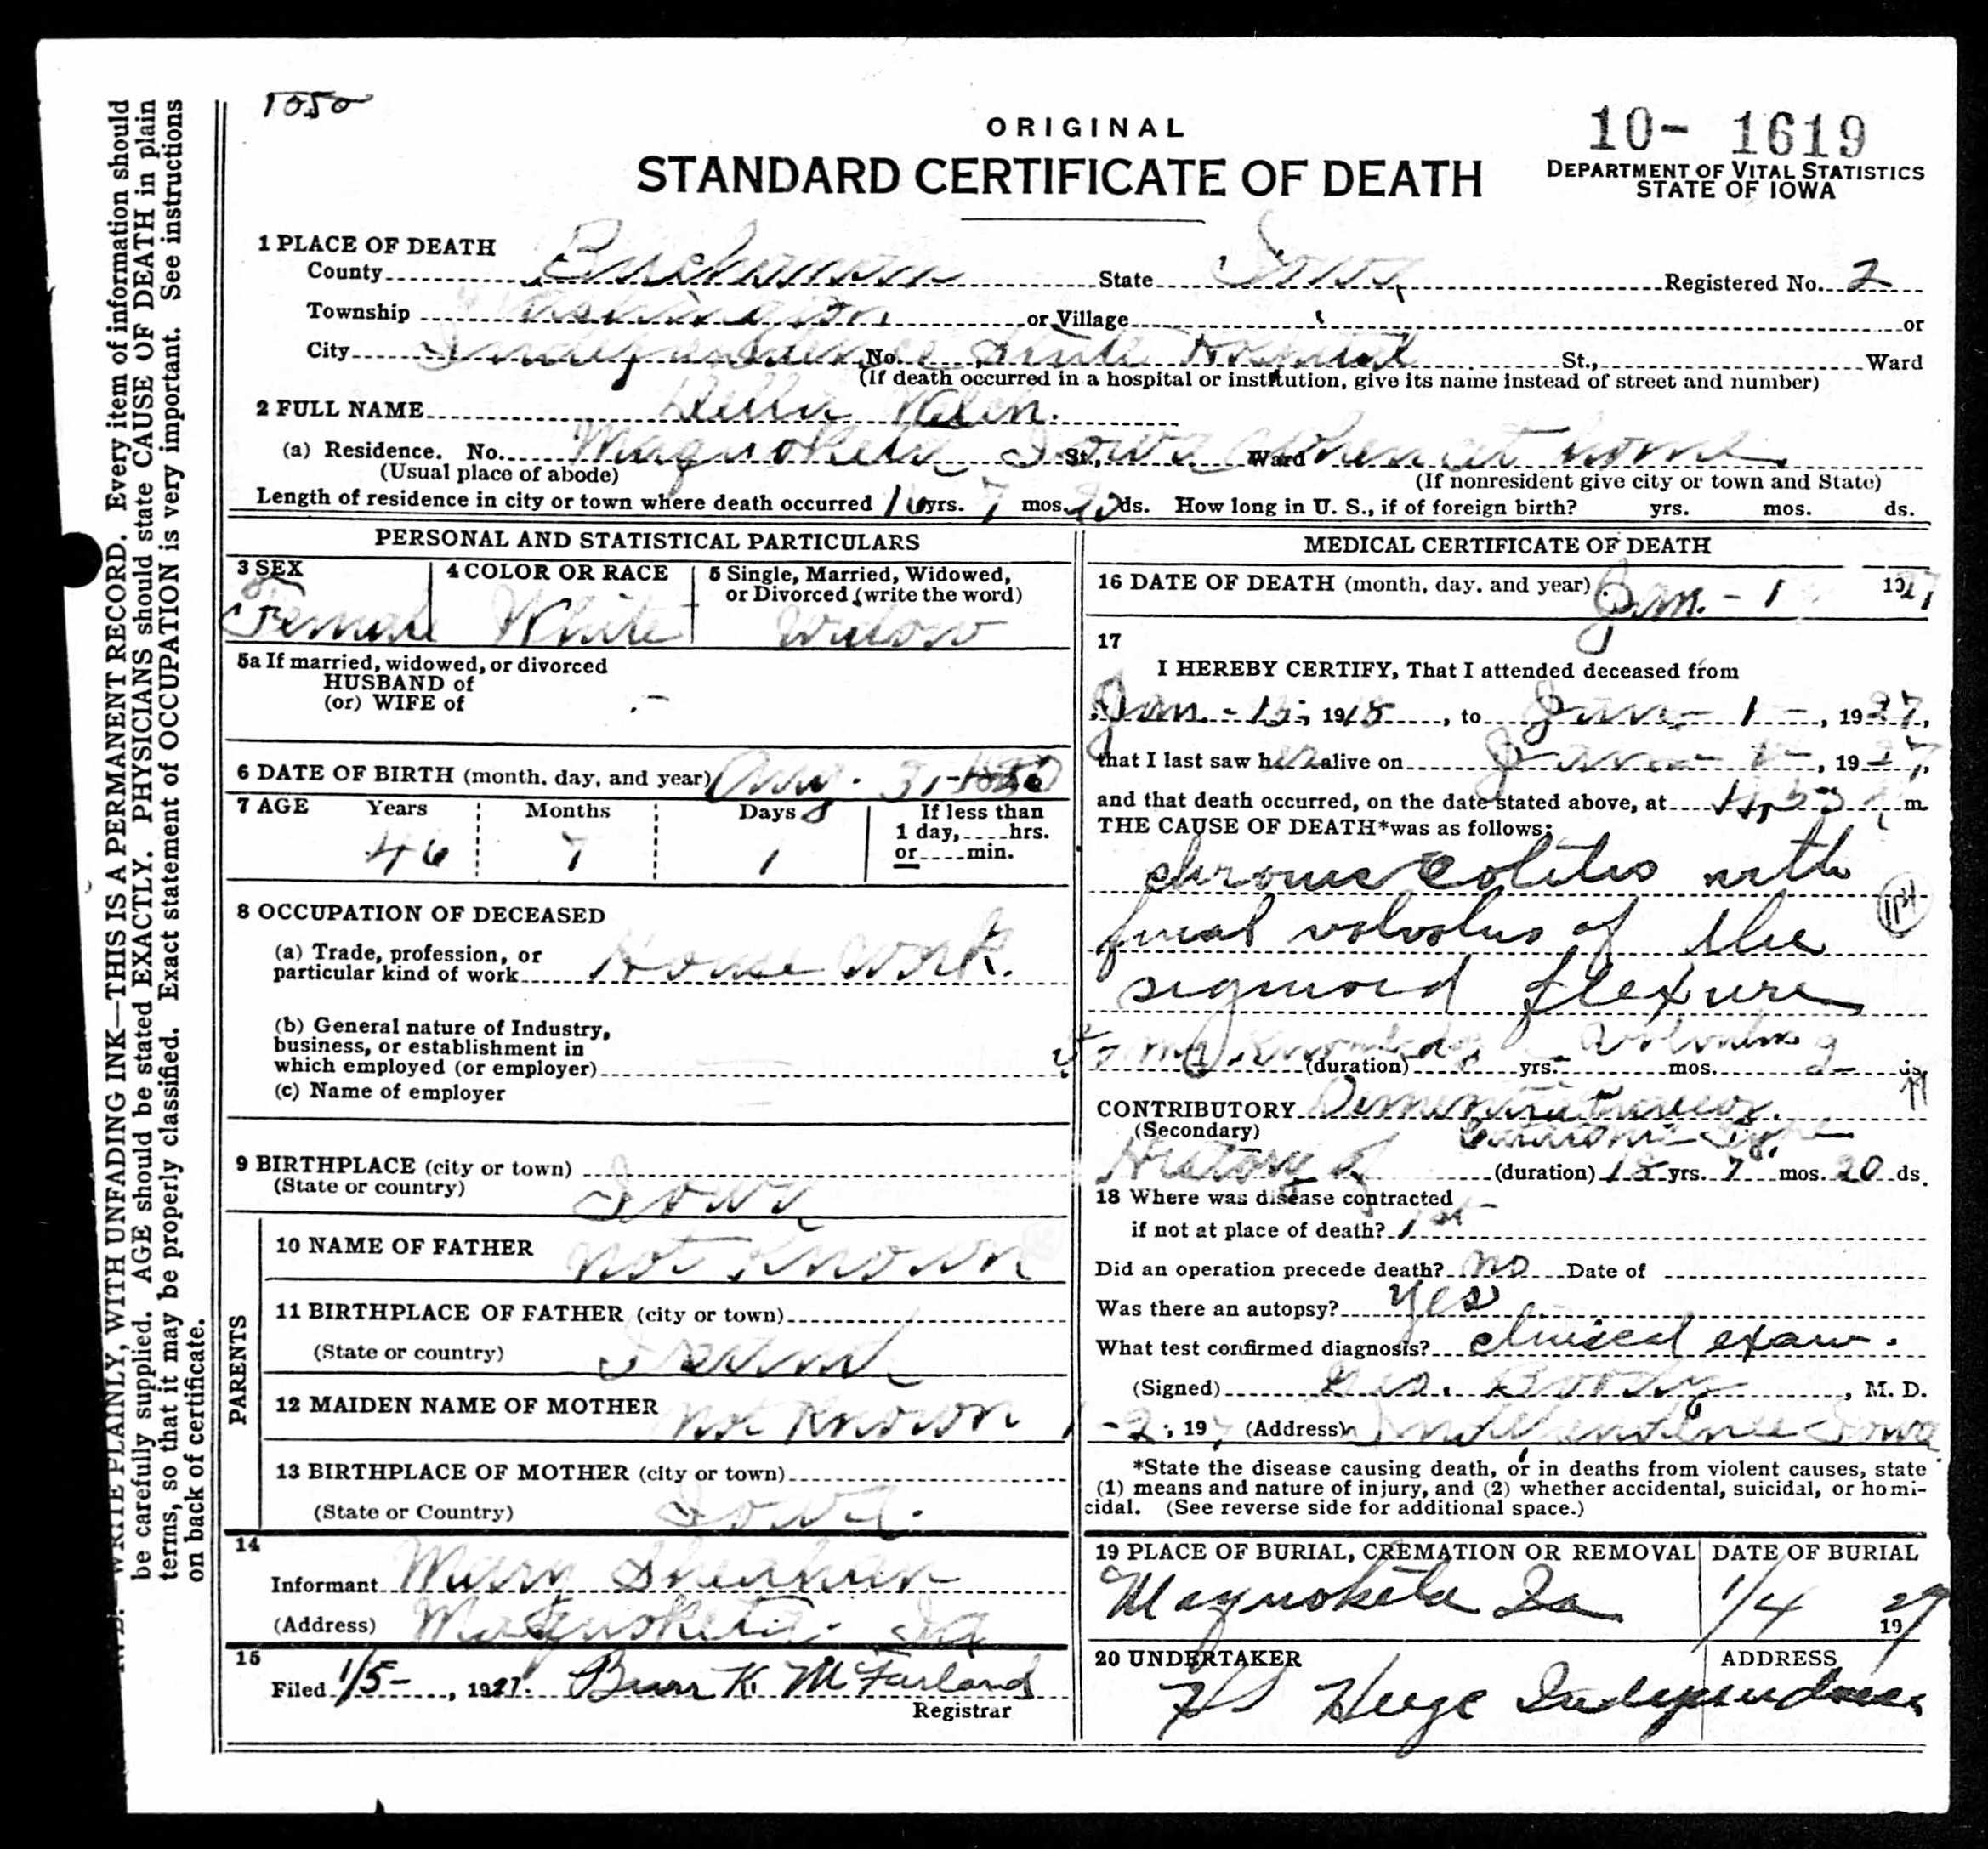 1050
ORIGINAL
10- 1619
STANDARD CERTIFICATE OF DEATH
DEPARTMENT OF VITAL STATISTICS
STATE OF IOWA
1 PLACE OF DEATH
County Buchanan State Iowa Registered No. 2
Township Washington or Village or
City Independence No. State Hospital St., Ward
(If death occurred in a hospital or institution, give its name instead of street and number)
2 FULL NAME Della
(a) Residence. No. Maquoketa Iowa St., Ward when at home
(Usual place of abode) (If nonresident give city or town and State)
Length of residence in city or town where death occurred yrs. 7 mos. ds. How long in U. S., if of foreign birth? yrs. mos. ds.
PERSONAL AND STATISTICAL PARTICULARS
3 SEX 4 COLOR OR RACE 5 Single, Married, Widowed, or Divorced (write the word)
Female White Widow
5a If married, widowed, or divorced
HUSBAND of
(or) WIFE of -
6 DATE OF BIRTH (month, day, and year)
7 AGE Years Months Days If less than
1 day, hrs.
or min.
46 7 1
8 OCCUPATION OF DECEASED
(a) Trade, profession, or
particular kind of work House work.
(b) General nature of Industry,
business, or establishment in
which employed (or employer)
(c) Name of employer
9 BIRTHPLACE (city or town)
(State or country) Iowa
PARENTS
10 NAME OF FATHER not known
11 BIRTHPLACE OF FATHER (city or town)
(State or country) Ireland
12 MAIDEN NAME OF MOTHER not known
13 BIRTHPLACE OF MOTHER (city or town)
(State or Country) Iowa.
14
Informant Mary Sheahan
(Address) Maquoketa - Ia
15
Filed 1/5-, 1927. Burr K. McFarland
Registrar
MEDICAL CERTIFICATE OF DEATH
16 DATE OF DEATH (month, day, and year) Jan. - 1 1927
17
I HEREBY CERTIFY, That I attended deceased from
Jan. - 1918, to Jan - 1 -, 1927,
that I last saw her alive on Jan - , 1927,
and that death occurred, on the date stated above, at m
THE CAUSE OF DEATH* was as follows:
chronic colitis with
final volvolus of the
sigmoid flexure
to my knowledge
(duration) yrs. mos. 2 ds
CONTRIBUTORY Dementia Praecox.
(Secondary) Catatonic Type
History of (duration) 18 yrs. 7 mos. 20 ds.
18 Where was disease contracted
if not at place of death?
Did an operation precede death? no Date of
Was there an autopsy? yes
What test confirmed diagnosis? clinical exam.
(Signed) Geo. Boody, M. D.
1-2, 197 (Address) Independence Iowa
*State the disease causing death, or in deaths from violent causes, state
(1) means and nature of injury, and (2) whether accidental, suicidal, or homi-
cidal. (See reverse side for additional space.)
19 PLACE OF BURIAL, CREMATION OR REMOVAL DATE OF BURIAL
Maquoketa Ia 1/4 1927
20 UNDERTAKER ADDRESS
Independence
WRITE PLAINLY, WITH UNFADING INK—THIS IS A PERMANENT RECORD. Every item of information should
be carefully supplied. AGE should be stated EXACTLY. PHYSICIANS should state CAUSE OF DEATH in plain
terms, so that it may be properly classified. Exact statement of OCCUPATION is very important. See instructions
on back of certificate.